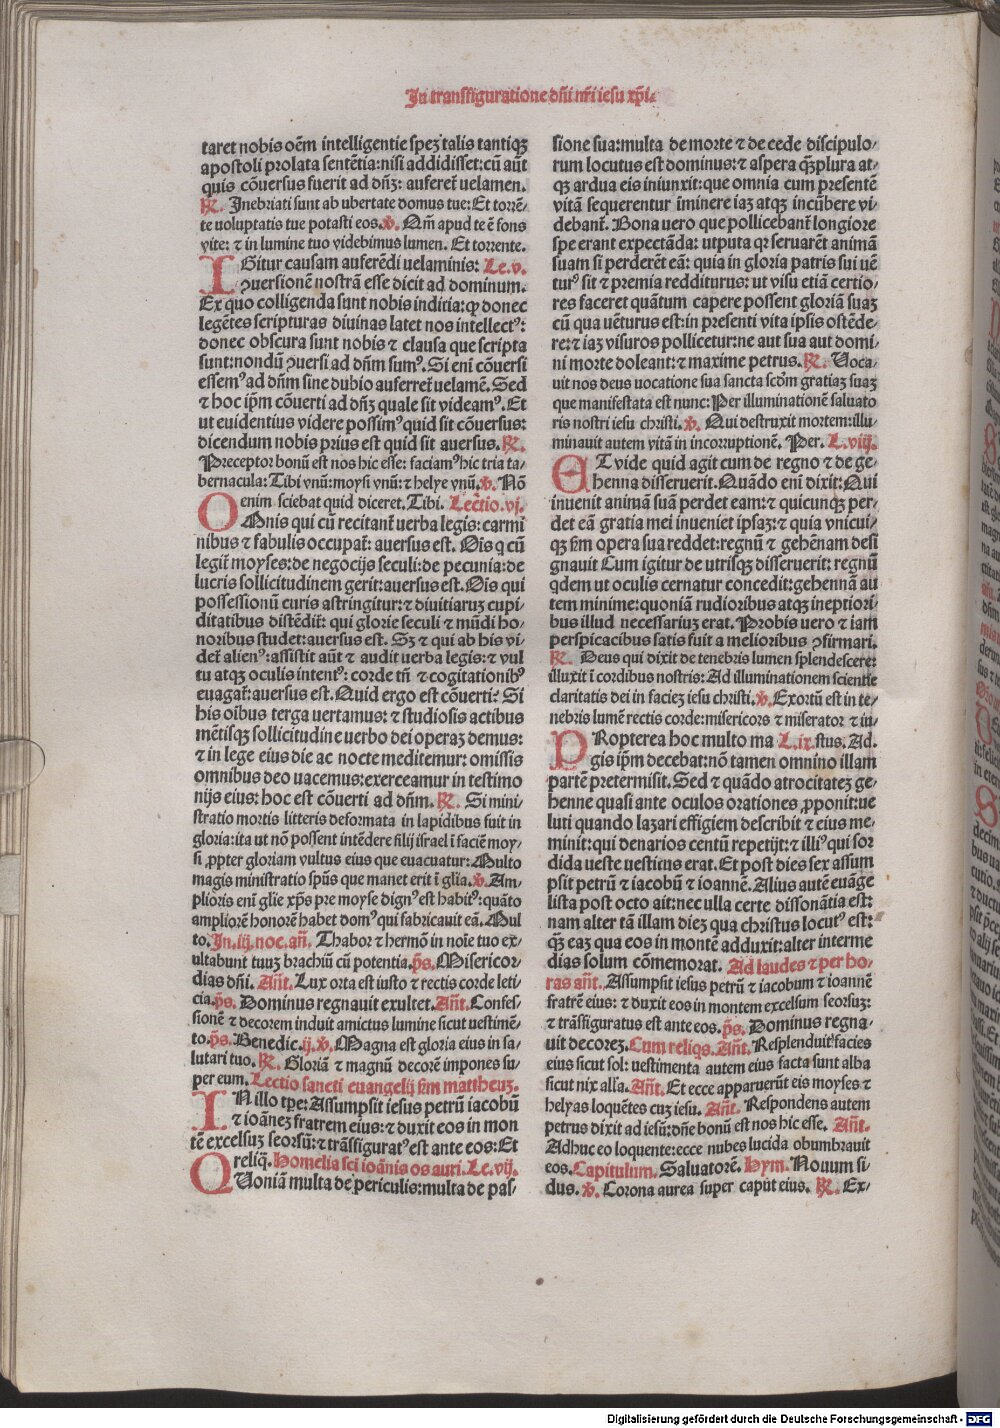 In transfiguratione dñi nr̃i iesu xp̃i.
taret nobis oēm intelligentie spez talis tantiqȝ
apostoli prolata sentētia: nisi addidisset: cū aūt
quis cōuersus fuerit ad dñȝ: auferet̃ uelamen.
℟. Inebriati sunt ab ubertate domus tue: Et torrē⸗
te uoluptatis tue potasti eos. ℣. Qm̄ apud te ē fons
vite: ⁊ in lumine tuo videbimus lumen. Et torrente.
IGitur causam auferēdi uelaminis: Le.v.
ꝯuersionē nostrā esse dicit ad dominum.
Ex quo colligenda sunt nobis inditia: ꝙ donec
legētes scripturas diuinas latet nos intellectꝰ:
donec obscura sunt nobis ⁊ clausa que scripta
sunt: nondū ꝯuersi ad dñm sumꝰ. Si eni cōuersi
essemꝰ ad dñm sine dubio auferret̃ uelamē. Sed
⁊ hoc ip̄m cōuerti ad dñȝ quale sit videamꝰ. Et
ut euidentius videre possimꝰ quid sit cōuersus:
dicendum nobis prius est quid sit auersus. ℟.
Preceptor bonū est nos hic esse: faciamꝰ hic tria ta⸗
bernacula: Tibi vnū: moysi vnū: ⁊ helye vnū. ℣. Nō
enim sciebat quid diceret. Tibi. Lectio.vj.
OMnis qui cū recitant̃ uerba legis: carmi
nibus ⁊ fabulis occupat̃: auersus est. Oīs q cū
legit̃ moyses: de negocijs seculi: de pecunia: de
lucris sollicitudinem gerit: auersus est. Oīs qui
possessionū curis astringitur: ⁊ diuitiaruȝ cupi⸗
ditatibus distēdit̃: qui glorie seculi ⁊ mūdi ho⸗
noribus studet: auersus est. Sȝ ⁊ qui ab his vi⸗
det̃ alienꝰ: assistit aūt ⁊ audit uerba legis: ⁊ vul
tu atqȝ oculis intentꝰ: corde tñ ⁊ cogitationibꝰ
euagat̃: auersus est. Quid ergo est cōuerti? Si
his oībus terga uertamus: ⁊ studiosis actibus
mētisqȝ sollicitudine uerbo dei operaȝ demus:
⁊ in lege eius die ac nocte meditemur: omissis
omnibus deo uacemus: exerceamur in testimo
nijs eius: hoc est cōuerti ad dñm. ℟. Si mini⸗
stratio mortis litteris deformata in lapidibus fuit in
gloria: ita ut nō possent intēdere filij israel ī faciē moy⸗
si ꝓpter gloriam vultus eius que euacuatur: Multo
magis ministratio sp̄us que manet erit ī glīa. ℣. Am⸗
plioris eni glīe xp̄s pre moyse dignꝰ est habitꝰ: quāto
ampliorē honorē habet domꝰ qui fabricauit eā. Mul
to. In.iij.noc.añ. Thabor ⁊ hermō in noīe tuo ex⸗
ultabunt tuuȝ brachiū cū potentia. p̄s. Misericor⸗
dias dñi. Añt. Lux orta est iusto ⁊ rectis corde leti⸗
cia. p̄s. Dominus regnauit exultet. Añt. Confes⸗
sionē ⁊ decorem induit amictus lumine sicut uestimē⸗
to. p̄s. Benedic.ij. ℣. Magna est gloria eius in sa⸗
lutari tuo. ℟. Gloriā ⁊ magnū decorē impones su⸗
per eum. Lectio sancti euangelij ẜm mattheuȝ.
IN illo tp̄e: Assumpsit iesus petrū iacobū
⁊ ioānēȝ fratrem eius: ⁊ duxit eos in mon
tē excelsuȝ seorsū: ⁊ trāsfiguratꝰ est ante eos: Et
reliq̄. Homelia sci ioānis os auri. Le.vij.
QVoniā multa de periculis: multa de pas⸗
sione sua: multa de morte ⁊ de cede discipulo⸗
rum locutus est dominus: ⁊ aspera qȝplura at⸗
qȝ ardua eis iniunxit: que omnia cum presentē
vitā sequerentur iminere iaȝ atqȝ incūbere vi⸗
debant̃. Bona uero que pollicebant̃ longiore
spe erant expectāda: utputa qꝛ seruarēt animā
suam si perderēt eā: quia in gloria patris sui uē
turꝰ sit ⁊ premia redditurus: ut visu etiā certio⸗
res faceret quātum capere possent gloriā suaȝ
cū qua uēturus est: in presenti vita ipsis ostēde⸗
re: ⁊ iaȝ visuros pollicetur: ne aut sua aut domi⸗
ni morte doleant: ⁊ maxime petrus. ℟. Uoca⸗
uit nos deus uocatione sua sancta scd̄m gratiaȝ suaȝ
que manifestata est nunc: Per illuminationē saluato
ris nostri iesu christi. ℣. Qui destruxit mortem: illu⸗
minauit autem vitā in incorruptionē. Per. L.viij.
ET vide quid agit cum de regno ⁊ de ge⸗
henna disseruerit. Quādo eni dixit: Qui
inuenit animā suā perdet eam: ⁊ quicunqȝ per⸗
det eā gratia mei inueniet ipsaȝ: ⁊ quia vnicui⸗
qȝ ẜm opera sua reddet: regnū ⁊ gehēnam desi
gnauit Cum igitur de utrisqȝ disseruerit: regnū
qdem ut oculis cernatur concedit: gehennā au
tem minime: quoniā rudioribus atqȝ ineptiori⸗
bus illud necessariuȝ erat. Probis uero ⁊ iam
perspicacibus satis fuit a melioribus ꝯfirmari.
℟. Deus qui dixit de tenebris lumen splendescere:
illuxit ī cordibus nostris: Ad illuminationem scientie
claritatis dei in facieȝ iesu christi. ℣. Exortū est in te⸗
nebris lumē rectis corde: misericors ⁊ miserator ⁊ iu⸗
PRopterea hoc multo ma L.ix. stus. Ad.
gis ip̄m decebat: nō tamen omnino illam
partē pretermisit. Sed ⁊ quādo atrocitateȝ ge⸗
henne quasi ante oculos orationes ꝓponit: ue
luti quando lazari effigiem describit ⁊ eius me⸗
minit: qui denarios centū repetijt: ⁊ illiꝰ qui sor
dida ueste uestitus erat. Et post dies sex assum
psit petrū ⁊ iacobū ⁊ ioannē. Alius autē euāge
lista post octo ait: nec ulla certe dissonātia est:
nam alter tā illam dieȝ qua christus locutꝰ est:
qȝ eaȝ qua eos in montē adduxit: alter interme
dias solum cōmemorat. Ad laudes ⁊ per ho⸗
ras añt. Assumpsit iesus petrū ⁊ iacobum ⁊ ioannē
fratrē eius: ⁊ duxit eos in montem excelsum seorsuȝ:
⁊ trāsfiguratus est ante eos. p̄s. Dominus regna⸗
uit decoreȝ. Cum reliqs. Añt. Resplenduit facies
eius sicut sol: uestimenta autem eius facta sunt alba
sicut nix alla. Añt. Et ecce apparuerūt eis moyses ⁊
helyas loquētes cuȝ iesu. Añt. Respondens autem
petrus dixit ad iesū: dñe bonū est nos hic esse. Añt.
Adhuc eo loquente: ecce nubes lucida obumbrauit
eos. Capitulum. Saluatorē. Hym. Nouum si⸗
dus. ℣. Corona aurea super caput eius. ℟. Ex⸗
Digitalisierung gefördert durch die Deutsche Forschungsgemeinschaft - DFG